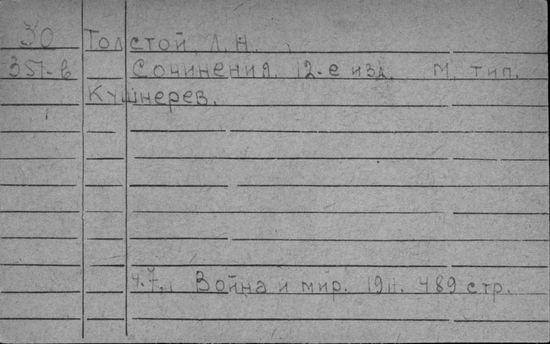 30 Толстой, Л. Н.
351-в Сочинения. 12-е изд. М, тип.
Кушнерев.
ч.7. Война и мир. 1911. 489 стр.